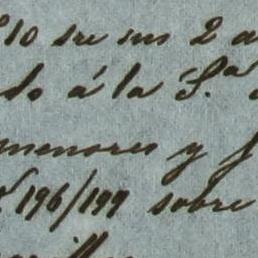 10 de sus 2 a
do á la S.ª
menores y f
196/199 sobre